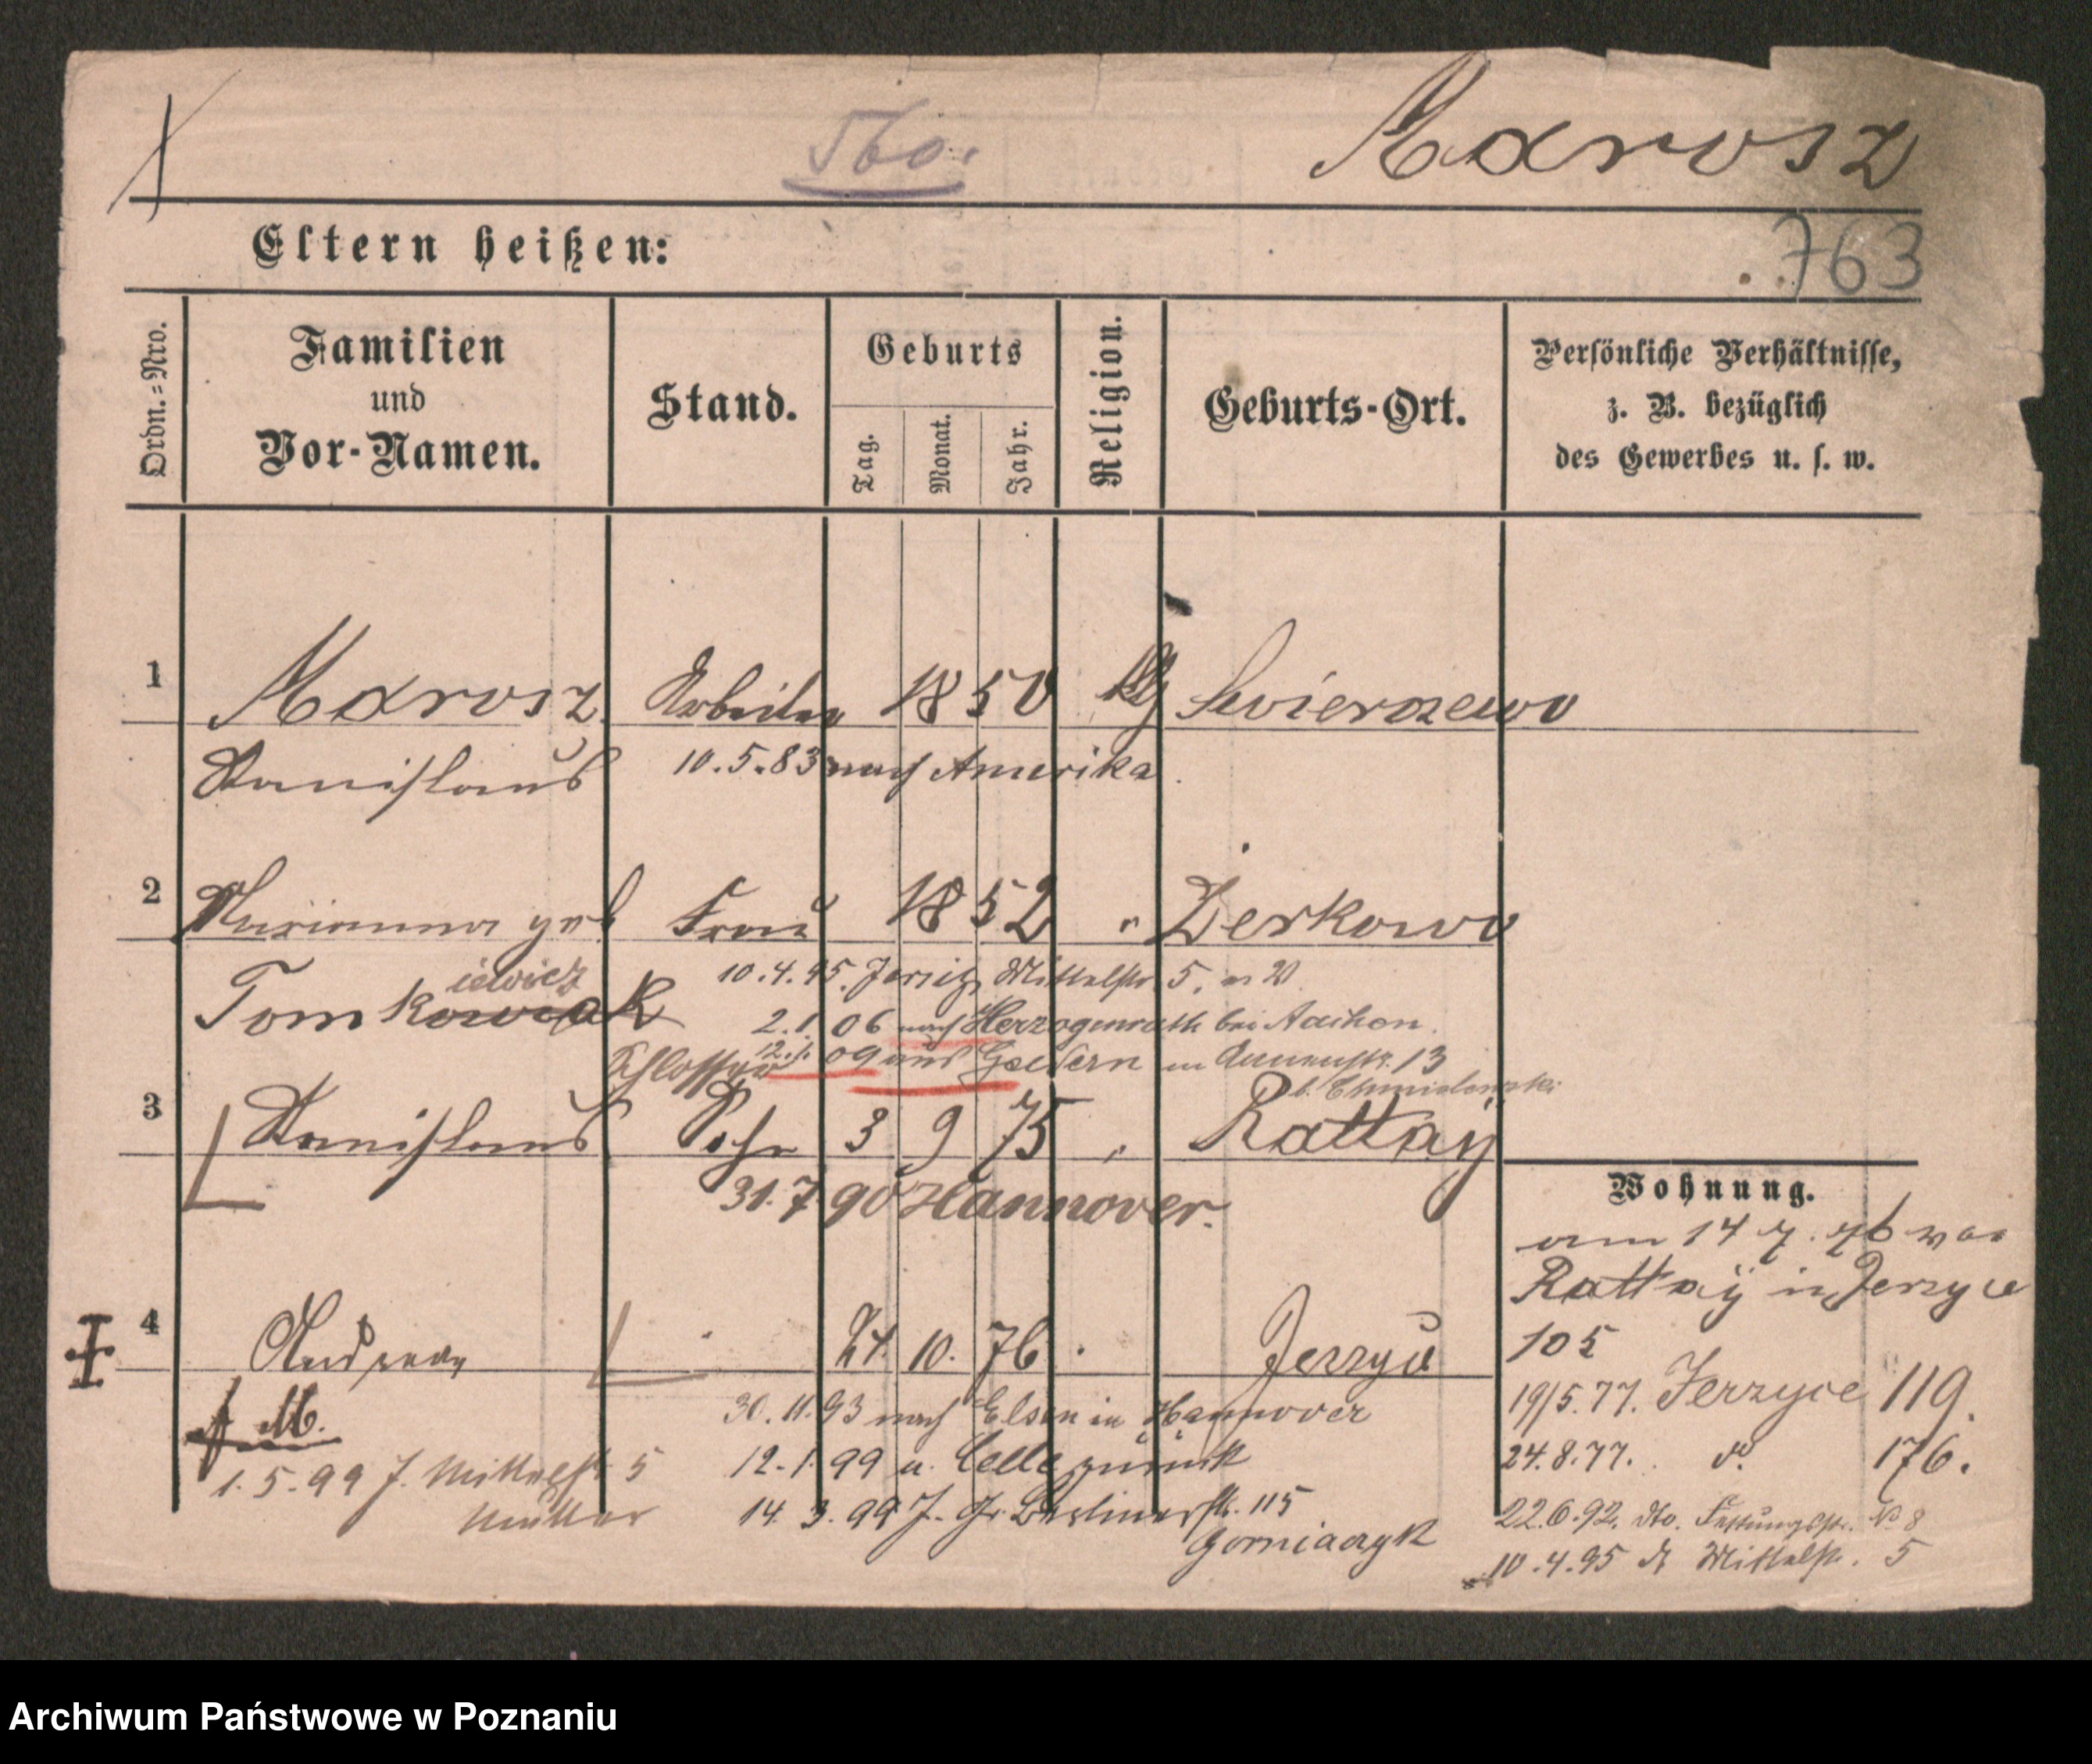 560.
Marosz
Eltern heißen:
763
Ordn.=Nro.
Familien
und
Vor-Namen.
Stand.
Geburts
Tag.
Monat.
Jahr.
Religion.
Geburts-Ort.
Persönliche Verhältnisse,
z. B. bezüglich
des Gewerbes u. s. w.
1
Marosz Arbeiter 1850 Swierzewo
Stanislaus 10.5.83 nach Amerika.
2
Marianna geb Frau 1852 " Żerkowo
iewicz
Tomkowiak 10.4.95. Jersitz Mittelstr. 5.
2.1.06 nach Herzogenrath bei Aachen.
Schlosser 12.1.09 aus 13
3
Stanislaus Sohn 3 9 75 " Rattay
31.7.90 Hannover.
Wohnung.
am 14 7. 76 von
Rattaÿ in Jerzyce
105
4
Andreas 21. 10. 76 Jerzyce
19/5.77. Jerzyce 119.
M. 30.11.93 nach Elsen in Hannover
24.8.77. do. 176.
1.5.99 J. Mittelstr. 5 12.1.99 v. Celle zurück
Müller 14.3.99 J. Gr. Berlinerstr. 115
Gorniaczyk
22.6.92. dto. Festungsstr. No 8
10.4.95 do Mittelstr. 5
Archiwum Państwowe w Poznaniu